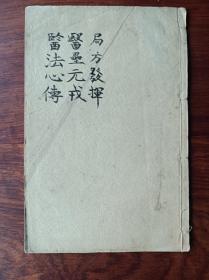 局方發揮
醫壘元戎
醫法心傳